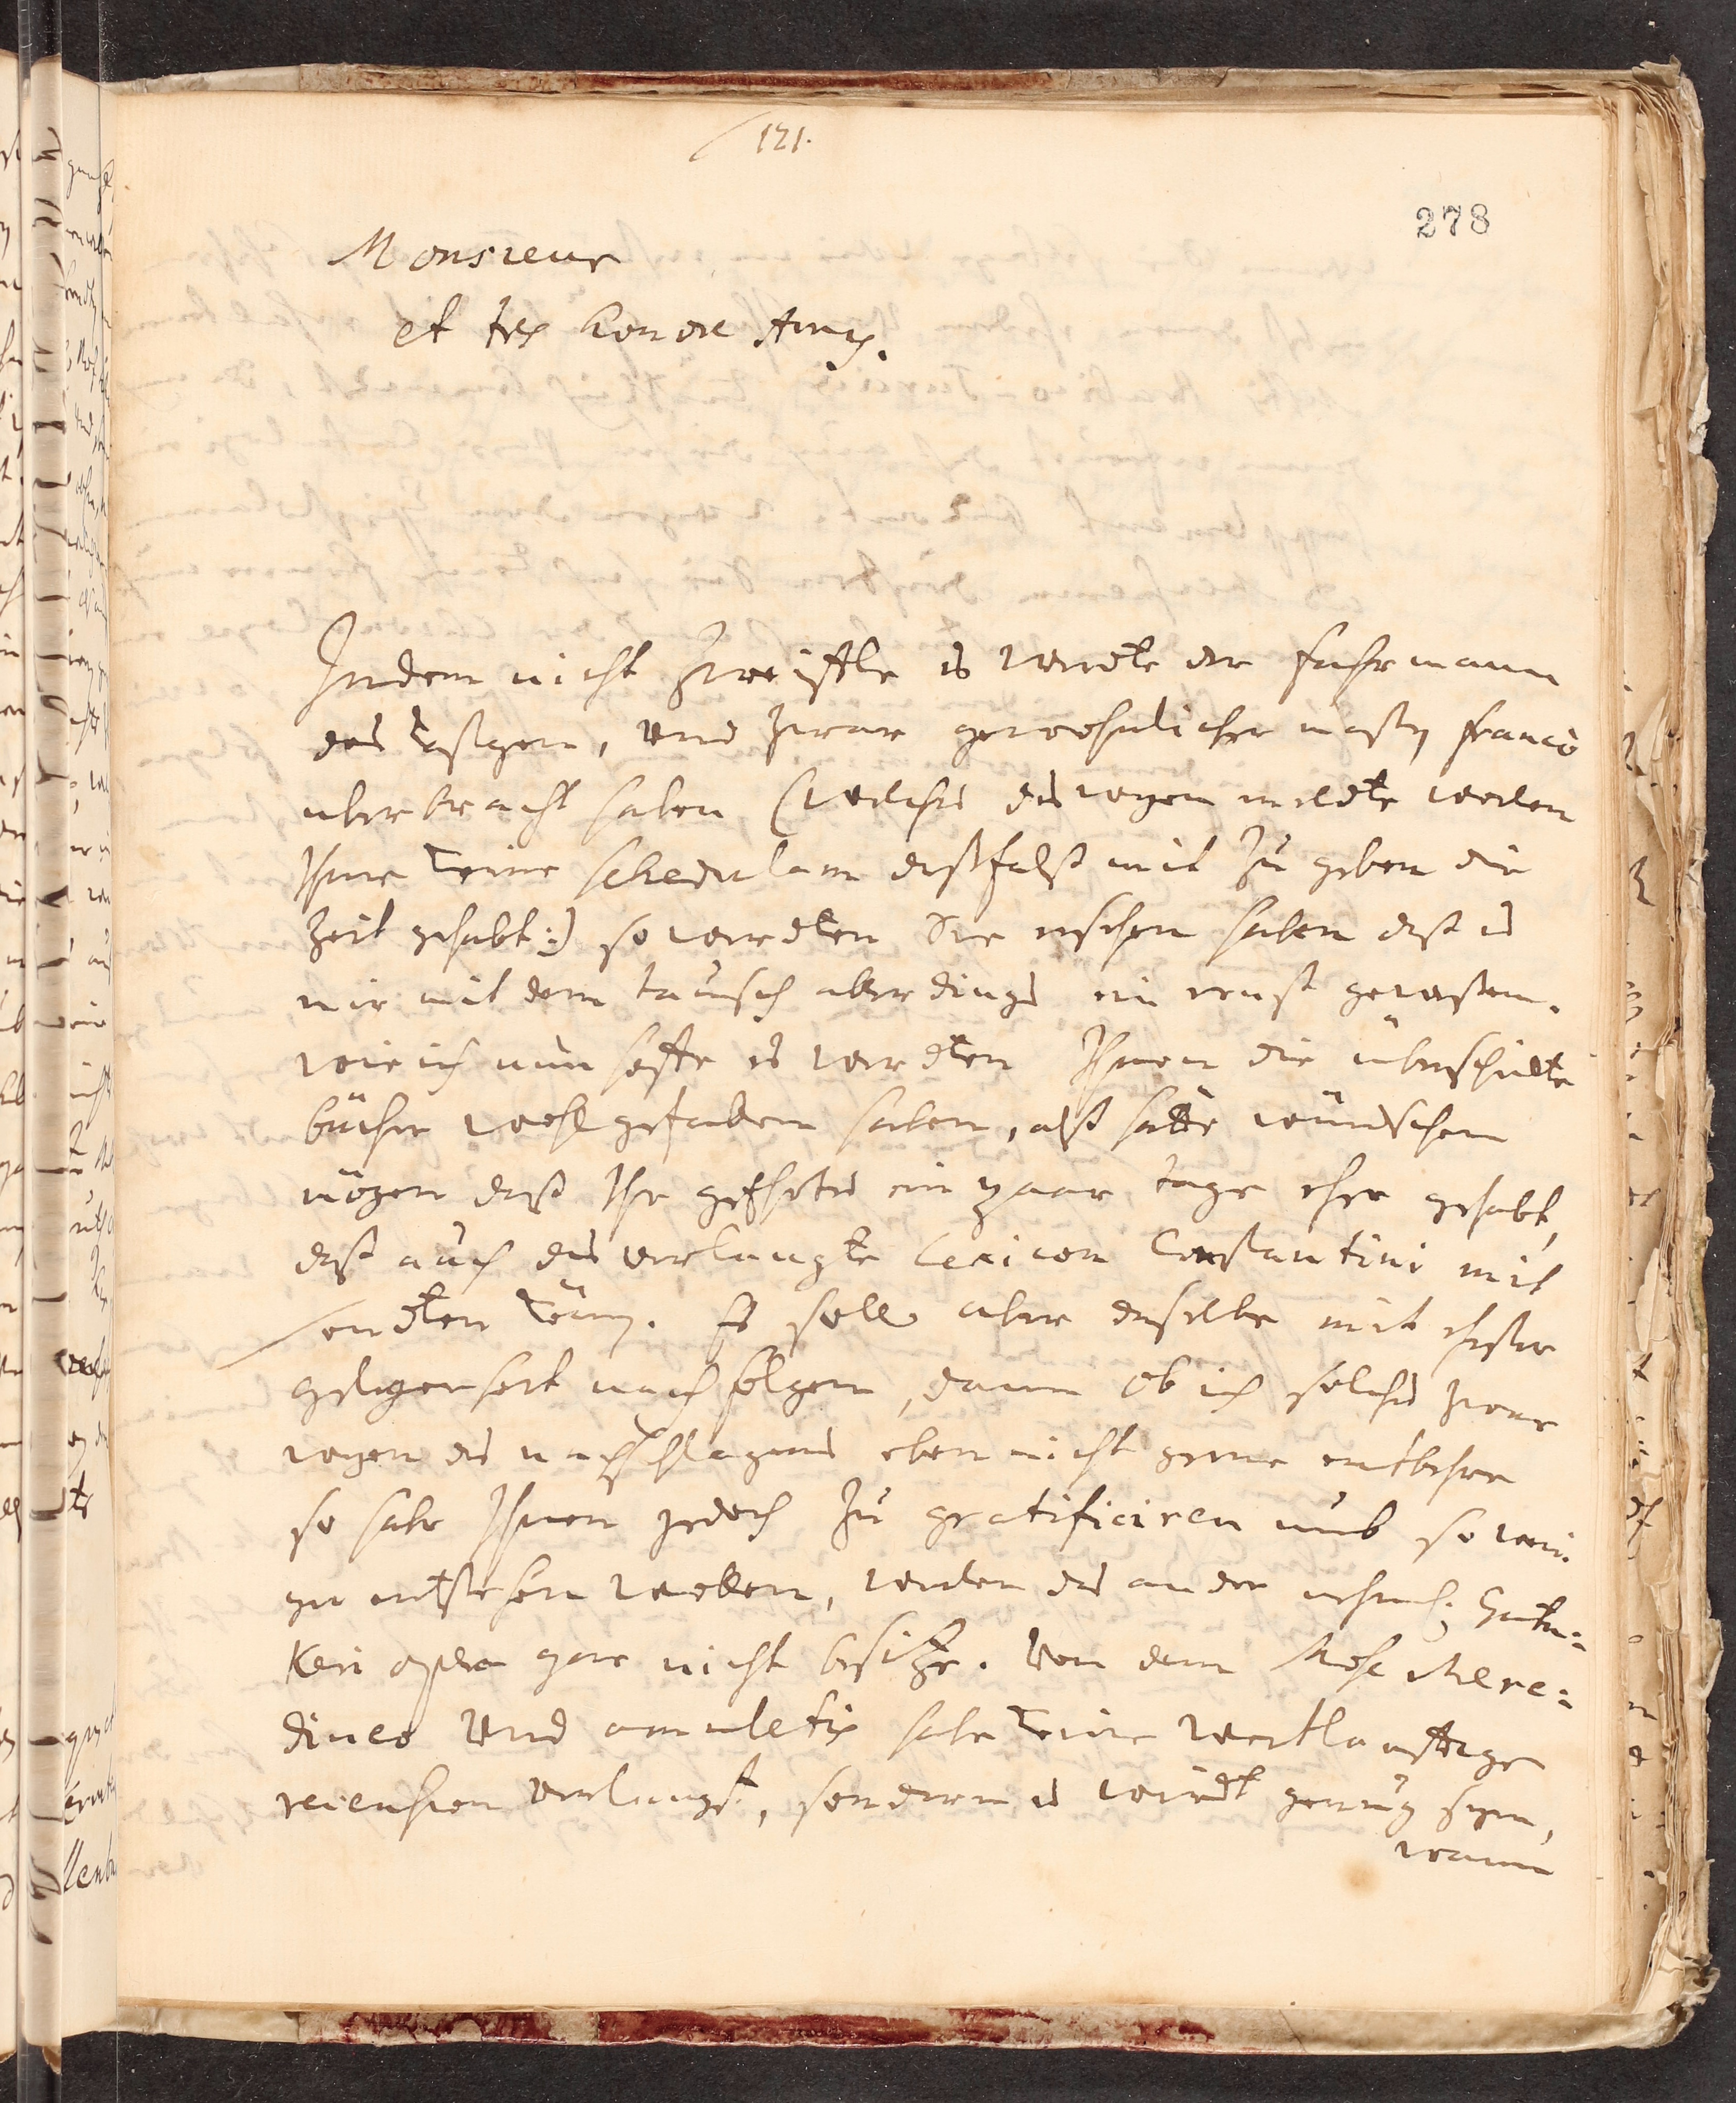 121.
278
Monsieur
et tres honoré Amy.
Indem nicht zweiffle es werdte der fuhrmann
das kästgen, und zwar gewohnlicher massen franco
uberbracht haben (welches deswegen meldte weilen
Ihme keine schedulam dessfalß mit zu geben die
Zeit gehabt:) so werdten Sie ersehen haben daß es
mir mit dem tausch allerdings ein ernst gewesen.
wie ich nun hoffe es werdten Ihnen die überschickte
bücher wohl gefallen haben, alß hätte wündschen
mögen daß Ihr geehrtes ein paar tage eher gehabt,
daß auch das verlangte Lexicon Constantini mit
sendten können. Es soll aber dasselbe mit ehester
gelegenheit nachfolgen, dann ob ich solches zwar
wegen des nachschlagens eben nicht gerne entbehre
so habe Ihnen jedoch zu gratificiren umb so weni
ger entstehen wollen, weilen das ander nehml:
Keri opera gar nicht besitze. Von dem Mose
und amuletis habe keine weitlauffige
recension verlangt, sondern es wirdt genug seyn,
wann